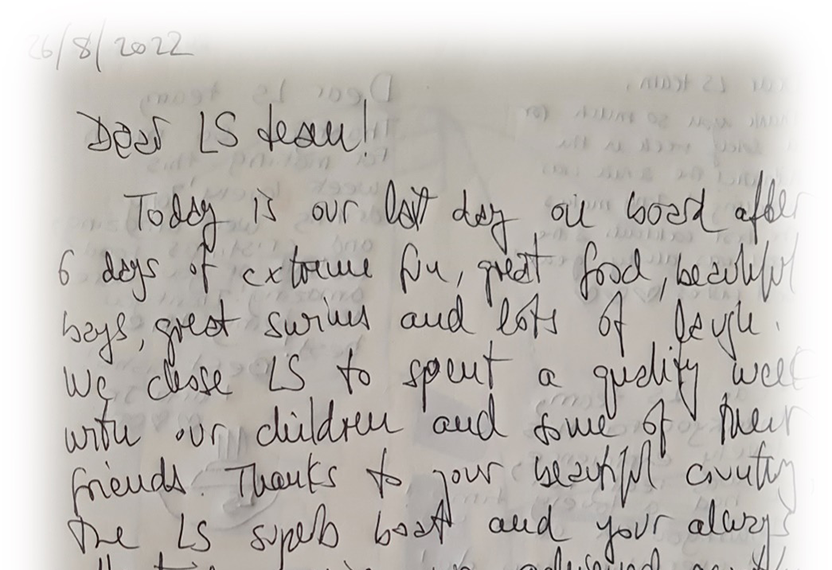 26/8/2022
Dear LS team!
Today is our last day on board after
6 days of extreme fun, great food, beautiful
bays, great swims and lots of laugh.
We chose LS to spent a quality week
with our children and some of their
friends. Thanks to your beautiful country
the LS superb boat and your always